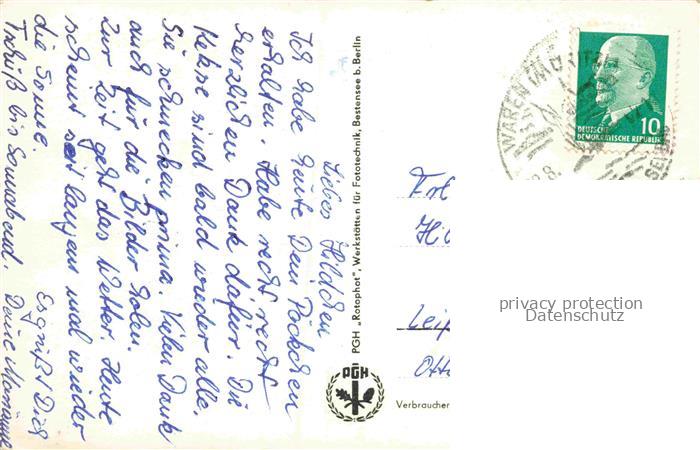 Liebes Hildchen
Ich habe heute Dein Päckchen
erhalten. Habe recht recht
herzlichen Dank dafür. Die
Kekse sind bald wieder alle.
Sie schmecken prima. Vielen Dank
auch für die Bilder holen.
Zur Zeit geht das Wetter. Heute
scheint seit langem mal wieder
die Sonne. Es grüßt Dich
Tschüß bis Sonnabend. Deine Marianne
PGH „Rotophot", Werkstätten für Fototechnik, Bestensee b. Berlin
PGH
WAREN (MÜRITZ)
DEUTSCHE
DEMOKRATISCHE REPUBLIK
10
Frl
Leip
Otto
Verbraucher
privacy protection
Datenschutz